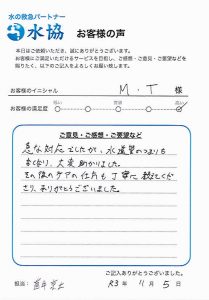 水の救急パートナー
水協 お客様の声
本日はご依頼いただき、誠にありがとうございます。
お客様にご満足いただけるサービスを目指し、ご感想・ご意見・ご要望などを
賜りたく、以下のご記入をよろしくお願い致します。
お客様のイニシャル M.T 様
お客様の満足度 低い 普通 高い
ご意見・ご感想・ご要望など
急な対応でしたが、水道管のつまりも
なくなり、大変助かりました。
その後のケアの仕方も丁寧に教えてくだ
さり、ありがとうございました。
ご記入ありがとうございました。
担当: R3年 11月 5日